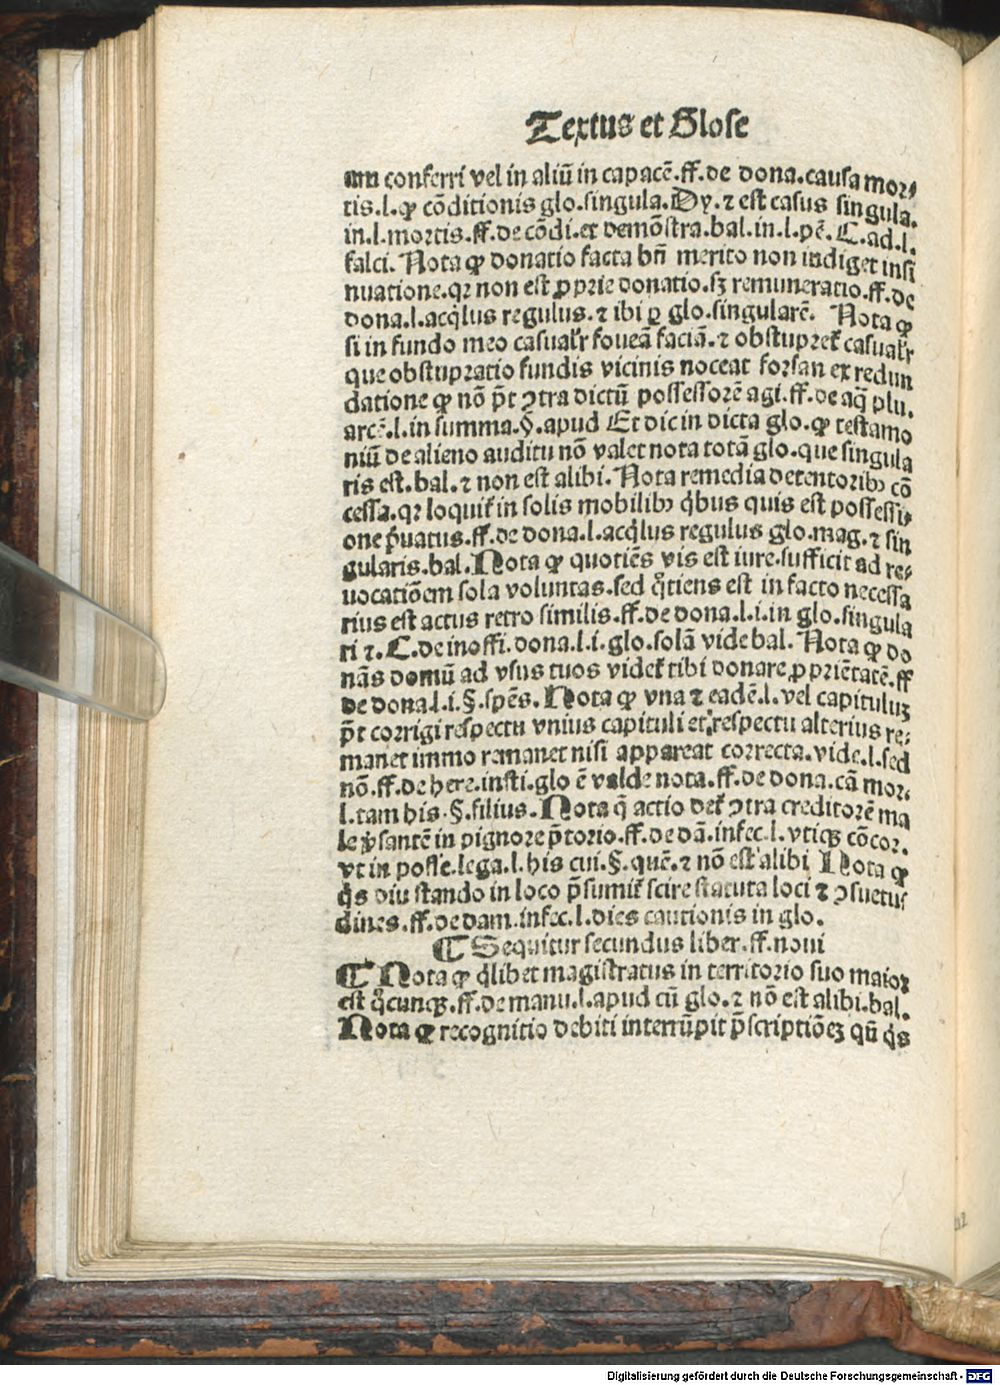 Textus et Glose
am conferri vel in aliū in capacē.ff.de dona.causa mor⸗
tis.l.ꝙ cōditionis glo.singula.Dy.⁊ est casus singula.
in.l.mortis.ff.de cōdi.et demōstra.bal.in.l.pē.C.ad.l.
falci. Nota ꝙ donatio facta bn̄ merito non indiget insi
nuatione.qꝛ non est ꝓprie donatio.sꝫ remuneratio.ff.de
dona.l.acq̇lus regulus.⁊ ibi ꝑ glo.singularē. Nota ꝙ
si in fundo meo casualr̄ foueā faciā.⁊ obstupꝛet̄ casualr̄
que obstupratio fundis vicinis noceat forsan ex redun
datione ꝙ nō p̄t ꝯtra dictū possessorē agi.ff.de aq̄ plu.
arcē.l.in summa.§.apud Et dic in dicta glo.ꝙ testamo
niū de alieno auditu nō valet nota totā glo.que singula
ris est.bal.⁊ non est alibi. Nota remedia detentoribꝰ cō
cessa.qꝛ loquit̄ in solis mobilibꝰ q̇bus quis est possessi⸗
one p̄uatus.ff.de dona.l.acq̇lus regulus glo.mag.⁊ sin
gularis.bal. Nota ꝙ quotiēs vis est iure.sufficit ad re⸗
uocatiōem sola voluntas.sed q̄tiens est in facto necessa
rius est actus retro similis.ff.de dona.l.i.in glo.singula
ri ⁊.C.de inoffi.dona.l.i.glo.solā vide bal. Nota ꝙ do
nās domū ad vsus tuos videt̄ tibi donare ꝓprietatē.ff
de dona.l.i.§.spēs. Nota ꝙ vna ⁊ eadē.l.vel capituluꝫ
p̄t corrigi respectu vnius capituli et respectu alterius re⸗
manet immo remanet nisi appareat correcta.vide.l.sed
nō.ff.de here.insti.glo ē valde nota.ff.de dona.cā mor.
l.tam his.§.filius. Nota q̄ actio det̄ ꝯtra creditorē ma
le v̄santē in pignore p̄torio.ff.de dā.infec.l.vtiqꝫ cōcor.
vt in posse.lega.l.his cui.§.quē.⁊ nō est alibi Nota ꝙ
q̇s diu stando in loco p̄sumit̄ scire statuta loci ⁊ ꝯsuetu
dines.ff.de dam.infec.l.dies cautionis in glo.
¶ Sequitur secundus liber.ff.noui
¶ Nota ꝙ q̇libet magistratus in territorio suo maioꝛ
est q̇cunqꝫ.ff.de manu.l.apud cū glo.⁊ nō est alibi.bal.
Nota ꝙ recognitio debiti interrūpit p̄scriptiōeꝫ qn̄ q̇s
Digitalisierung gefördert durch die Deutsche Forschungsgemeinschaft - DFG